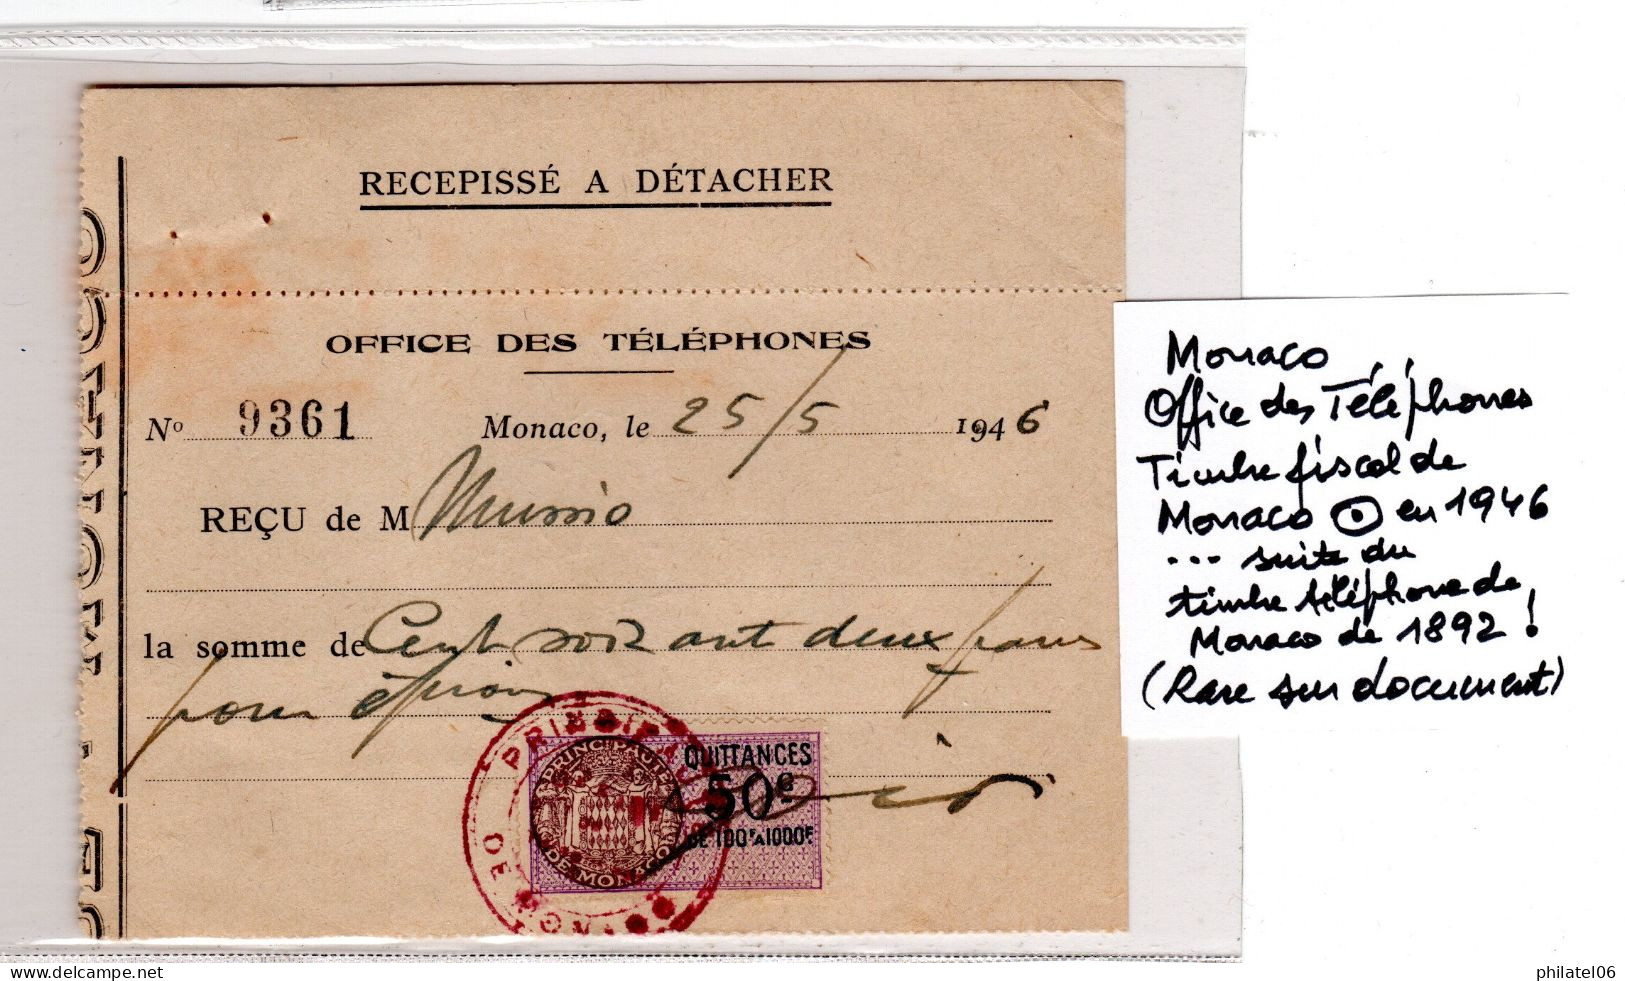 RECEPISSÉ A DÉTACHER
OFFICE DES TÉLÉPHONES
No 9361 Monaco, le 25/5 1946
REÇU de M
la somme de Cent soix ant deux francs
pour
PRINCIPAUTÉ
DE MONACO
QUITTANCES
50c
DE 100F A 1000F
Monaco
Office des Téléphones
Timbre fiscal de
Monaco ⊙ en 1946
... suite du
timbre téléphone de
Monaco de 1892 !
(Rare sur document)
www.delcampe.net
philatel06